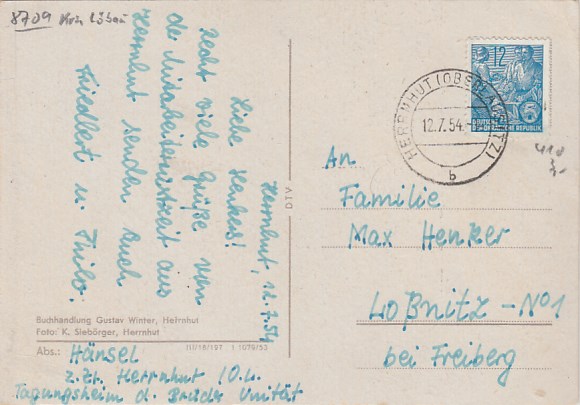 8709 Krs. Löbau
Herrnhut, 12.7.54
Liebe Henkers!
Recht viele Grüße von
der Mitarbeiterfreizeit aus
Herrnhut senden Euch
Friedbert u. Thilo.
Buchhandlung Gustav Winter, Herrnhut
Foto: K. Siebörger, Herrnhut
III/18/197 1 1079/53
Abs.: Hänsel
z.Zt. Herrnhut /O.L.
Tagungsheim d. Brüder Unität
DTV
12
DEUTSCHE
DEMOKRATISCHE REPUBLIK
HERRNHUT (OBERLAUSITZ)
12.7.54
b
An
Familie
Max Henker
Loßnitz - No 1
bei Freiberg